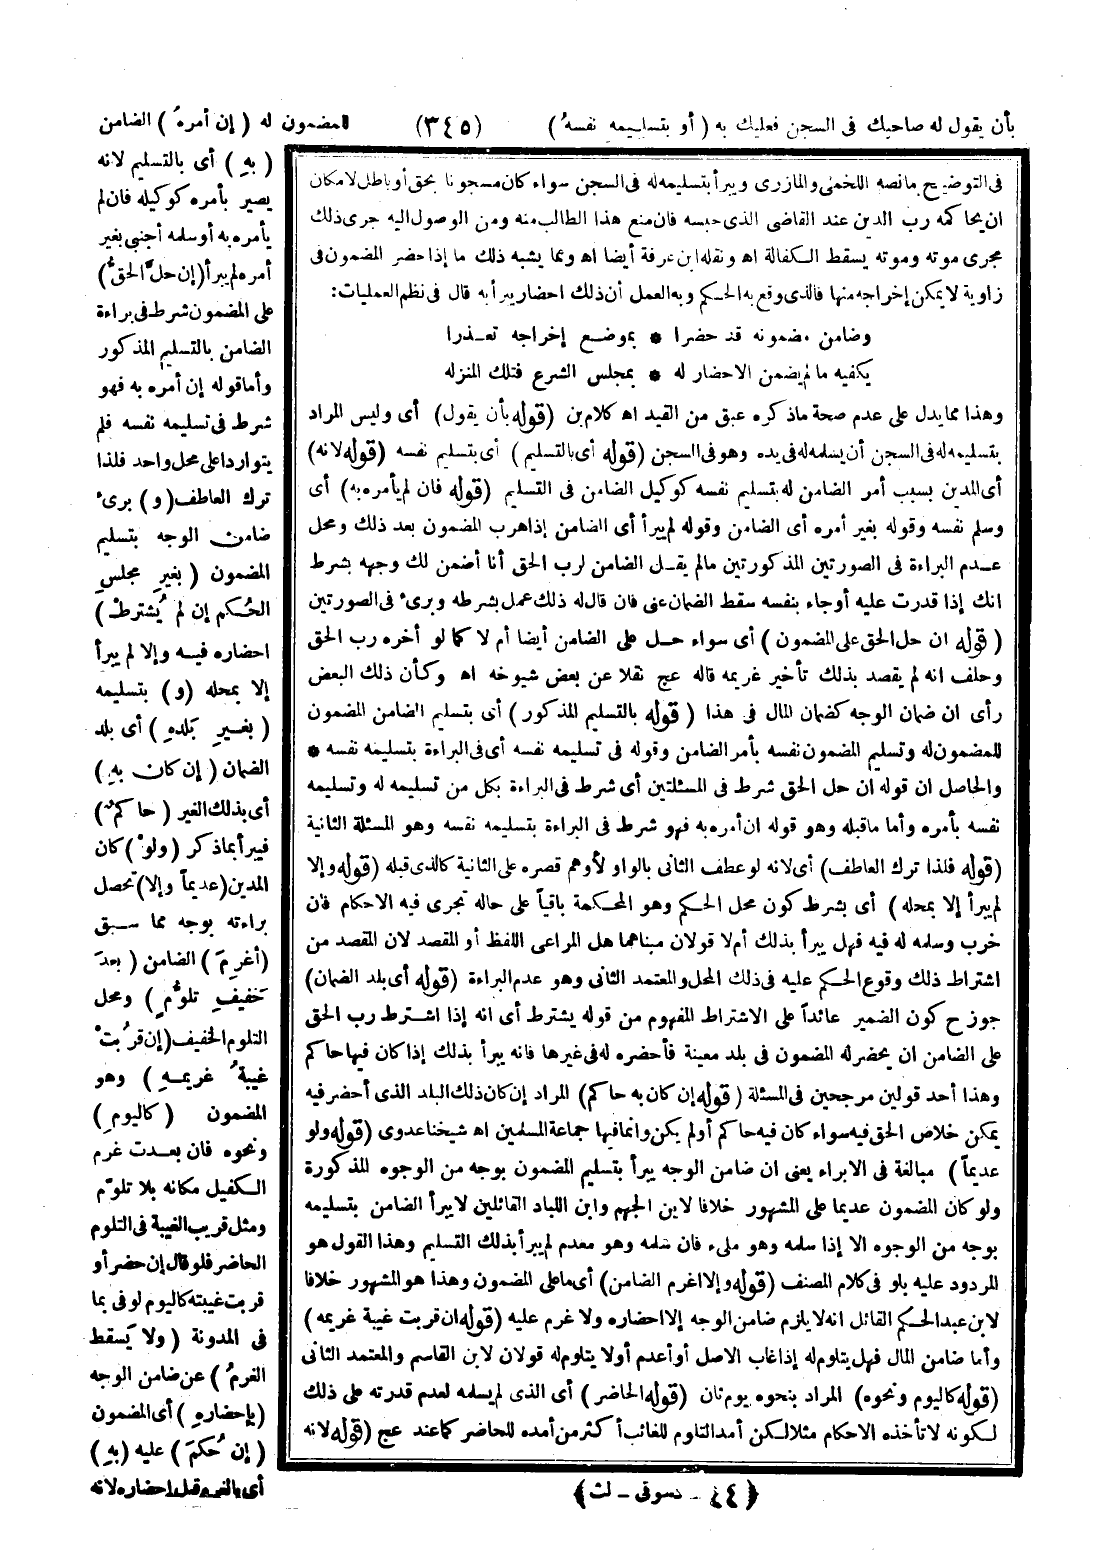 بأن يقول له صاحبك فى السجن فعليك به (أو بتسليمه نفسهُ) (٣٤٥) المضمون له (إن أمرهُ) الضامن
(بهِ) أى بالتسليم لانه
يصير بأمره كوكيله فان لم
يأمره به أو سلمه أجنبي بغير
أمره لم يبرأ (إن حلَّ الحقُّ)
على المضمون شرط فى براءة
الضامن بالتسليم المذكور
وأما قوله إن أمره به فهو
شرط فى تسليمه نفسه فلم
يتواردا على محل واحد فلذا
ترك العاطف (و) برىء
ضامن الوجه بتسليم
المضمون (بغيرِ مجلسِ
الحُكم إن لم يُشترطْ)
احضاره فيه وإلا لم يبرأ
إلا بمحله (و) بتسليمه
(بغيرِ بَلدهِ) أى بلد
الضمان (إن كان بهِ)
أى بذلك الغير (حاكمٌ)
فيبرأ بما ذكر (ولوْ) كان
المدين (عديماً وإلا) تحصل
براءته بوجه مما سبق
(أغرِمَ) الضامن (بعدَ
خَفيفِ تلوُّمٍ) ومحل
التلوم الخفيف (إن قرُبتْ
غيبةُ غريمهِ) وهو
المضمون (كاليومِ)
ونحوه فان بعدت غرم
الكفيل مكانه بلا تلوّم
ومثل قريب الغيبة فى التلوم
الحاضر فلو قال إن حضر أو
قربت غيبته كاليوم لوفى بما
فى المدونة (ولا يَسقط
الغرمُ) عن ضامن الوجه
(بإحضارهِ) أى المضمون
(إن حُكمَ) عليه (بهِ)
أى بالغرم قبل إحضاره لانه
فى التوضيح ما نصه اللخمى والمازرى ويبرأ بتسليمه له فى السجن سواء كان مسجونا بحق أو باطل لامكان
ان يحاكمه رب الدين عند القاضى الذى حبسه فان منع هذا الطالب منه ومن الوصول اليه جرى ذلك
مجرى موته وموته يسقط الكفالة اه ونقله ابن عرفة أيضا اه ومما يشبه ذلك ما إذا حضر المضمون فى
زاوية لا يمكن إخراجه منها فالذى وقع به الحكم وبه العمل أن ذلك احضار يبرأ به قال فى نظم العمليات:
وضامن مضمونه قد حضرا * بموضع إخراجه تعذرا
يكفيه ما لم يضمن الاحضار له * بمجلس الشرع فتلك المنزله
وهذا مما يدل على عدم صحة ما ذكره عبق من القيد اه كلام بن (قوله بأن يقول) أى وليس المراد
بتسليمه له فى السجن أن يسلمه له فى يده وهو فى السجن (قوله أى بالتسليم) أى بتسليم نفسه (قوله لانه)
أى المدين بسبب أمر الضامن له بتسليم نفسه كوكيل الضامن فى التسليم (قوله فان لم يأمره به) أى
وسلم نفسه وقوله بغير أمره أى الضامن وقوله لم يبرأ أى الضامن إذا هرب المضمون بعد ذلك ومحل
عدم البراءة فى الصورتين المذكورتين ما لم يقل الضامن لرب الحق أنا أضمن لك وجهه بشرط
انك إذا قدرت عليه أو جاء بنفسه سقط الضمان عنى فان قال له ذلك عمل بشرطه وبرىء فى الصورتين
(قوله ان حل الحق على المضمون) أى سواء حل على الضامن أيضا أم لا كما لو أخره رب الحق
وحلف انه لم يقصد بذلك تأخير غريمه قاله عج نقلا عن بعض شيوخه اه وكأن ذلك البعض
رأى ان ضمان الوجه كضمان المال فى هذا (قوله بالتسليم المذكور) أى بتسليم الضامن المضمون
للمضمون له وتسليم المضمون نفسه بأمر الضامن وقوله فى تسليمه نفسه أى فى البراءة بتسليمه نفسه *
والحاصل ان قوله ان حل الحق شرط فى المسئلتين أى شرط فى البراءة بكل من تسليمه له وتسليمه
نفسه بأمره وأما ما قبله وهو قوله ان أمره به فهو شرط فى البراءة بتسليمه نفسه وهو المسئلة الثانية
(قوله فلذا ترك العاطف) أى لانه لو عطف الثانى بالواو لأوهم قصره على الثانية كالذى قبله (قوله وإلا
لم يبرأ إلا بمحله) أى بشرط كون محل الحكم وهو المحكمة باقياً على حاله تجرى فيه الاحكام فان
خرب وسلمه له فيه فهل يبرأ بذلك أم لا قولان مبناهما هل المراعى اللفظ أو المقصد لان المقصد من
اشتراط ذلك وقوع الحكم عليه فى ذلك المحل والمعتمد الثانى وهو عدم البراءة (قوله أى بلد الضمان)
جوز ح كون الضمير عائداً على الاشتراط المفهوم من قوله يشترط أى انه إذا اشترط رب الحق
على الضامن ان يحضر له المضمون فى بلد معينة فأحضره له فى غيرها فانه يبرأ بذلك إذا كان فيها حاكم
وهذا أحد قولين مرجحين فى المسئلة (قوله إن كان به حاكم) المراد إن كان ذلك البلد الذى أحضر فيه
يمكن خلاص الحق فيه سواء كان فيه حاكم أو لم يكن وانما فيها جماعة المسلمين اه شيخنا عدوى (قوله ولو
عديماً) مبالغة فى الابراء يعنى ان ضامن الوجه يبرأ بتسليم المضمون بوجه من الوجوه المذكورة
ولو كان المضمون عديما على المشهور خلافا لابن الجهم وابن اللباد القائلين لا يبرأ الضامن بتسليمه
بوجه من الوجوه الا إذا سلمه وهو ملىء فان سلمه وهو معدم لم يبرأ بذلك التسليم وهذا القول هو
المردود عليه بلو فى كلام المصنف (قوله وإلا اغرم الضامن) أى ما على المضمون وهذا هو المشهور خلافا
لابن عبد الحكم القائل انه لا يلزم ضامن الوجه إلا احضاره ولا غرم عليه (قوله ان قربت غيبة غريمه)
وأما ضامن المال فهل يتلوم له إذا غاب الاصل أو أعدم أو لا يتلوم له قولان لابن القاسم والمعتمد الثانى
(قوله كاليوم ونحوه) المراد بنحوه يومان (قوله الحاضر) أى الذى لم يسلمه لعدم قدرته على ذلك
لكونه لا تأخذه الاحكام مثلا لكن أمد التلوم للغائب أكثر من أمده للحاضر كما عند عج (قوله لانه
(٤٤ - دسوقى - لث)